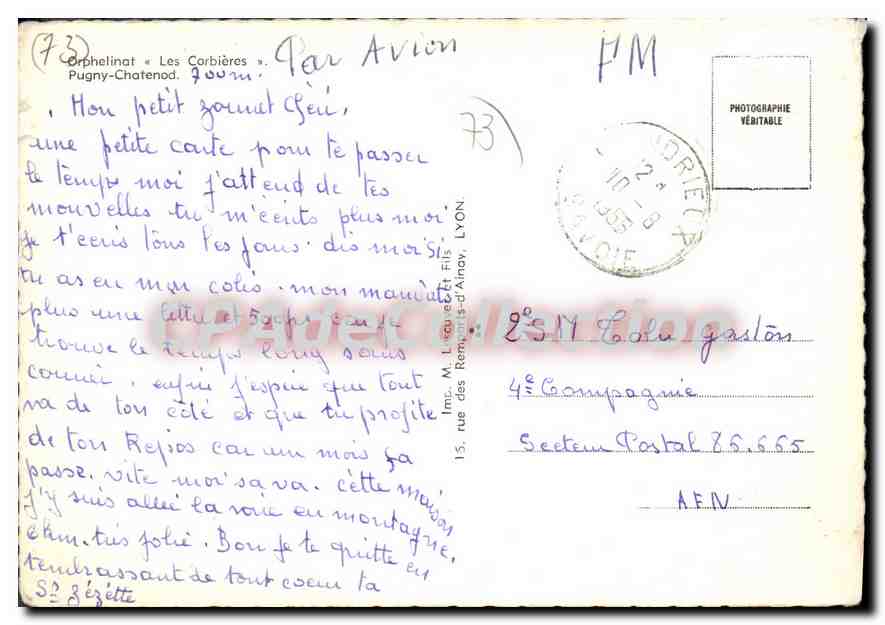 (73)
Orphelinat « Les Corbières ».
Pugny-Chatenod. 700m.
Par Avion
FM
Mon petit zounet chéri,
une petite carte pour te passer
le temps moi j'attend de tes
nouvelles tu m'écrits plus moi
je t'ecris tous les jours. dis moi si
tu as eu mon colis. mon mandat
plus une lettre et 500frs car je
trouve le temps long sans
courrier. enfin j'espère que tout
va de ton côté et que tu profite
de ton Repos car un mois ça
passe. vite moi sa va. cette maison
j'y suis allée la voir en montagne.
très jolie. Bon je te quitte en
t'embrassant de tout coeur ta
Zézétte
73
12 H
10 - 8
SAVOIE
PHOTOGRAPHIE
VÉRITABLE
Imp. M. Lescuyer et Fils
15, rue des Remparts-d'Ainay, LYON.
CPADeCollection
2e SM Colu gaston
4e Compagnie
Secteur Postal 86.665
AFN